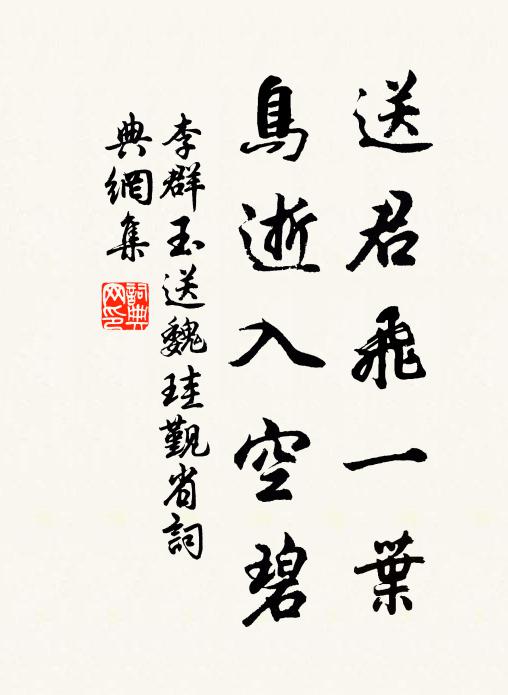 送君飛一葉
鳥逝入空碧
李群玉送魏珪觀省詞
典網集
詞典
网印